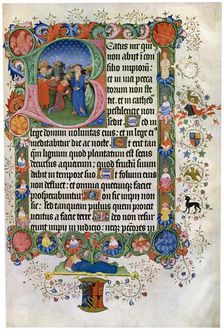 Beatus uir qui
non abijt in con
silio impiorum: et
in uia peccatorum
non ste
tit: et in cathedra
pestilencie non
sedit. Sed in
lege domini uoluntas eius: et in lege ei
meditabitur die ac nocte. Et erit tan
quam lignum quod plantatum est secus
decursus aquarum: quod fructum suum
dabit in tempore suo. Et folium eius
non defluet: et omnia quecunque faciet
prosperabuntur. Non sic impij non
sic: sed tanquam puluis quem proicit
uentus a facie terre. Ideo non resur
gunt impij in iudicio: neque peccatores in